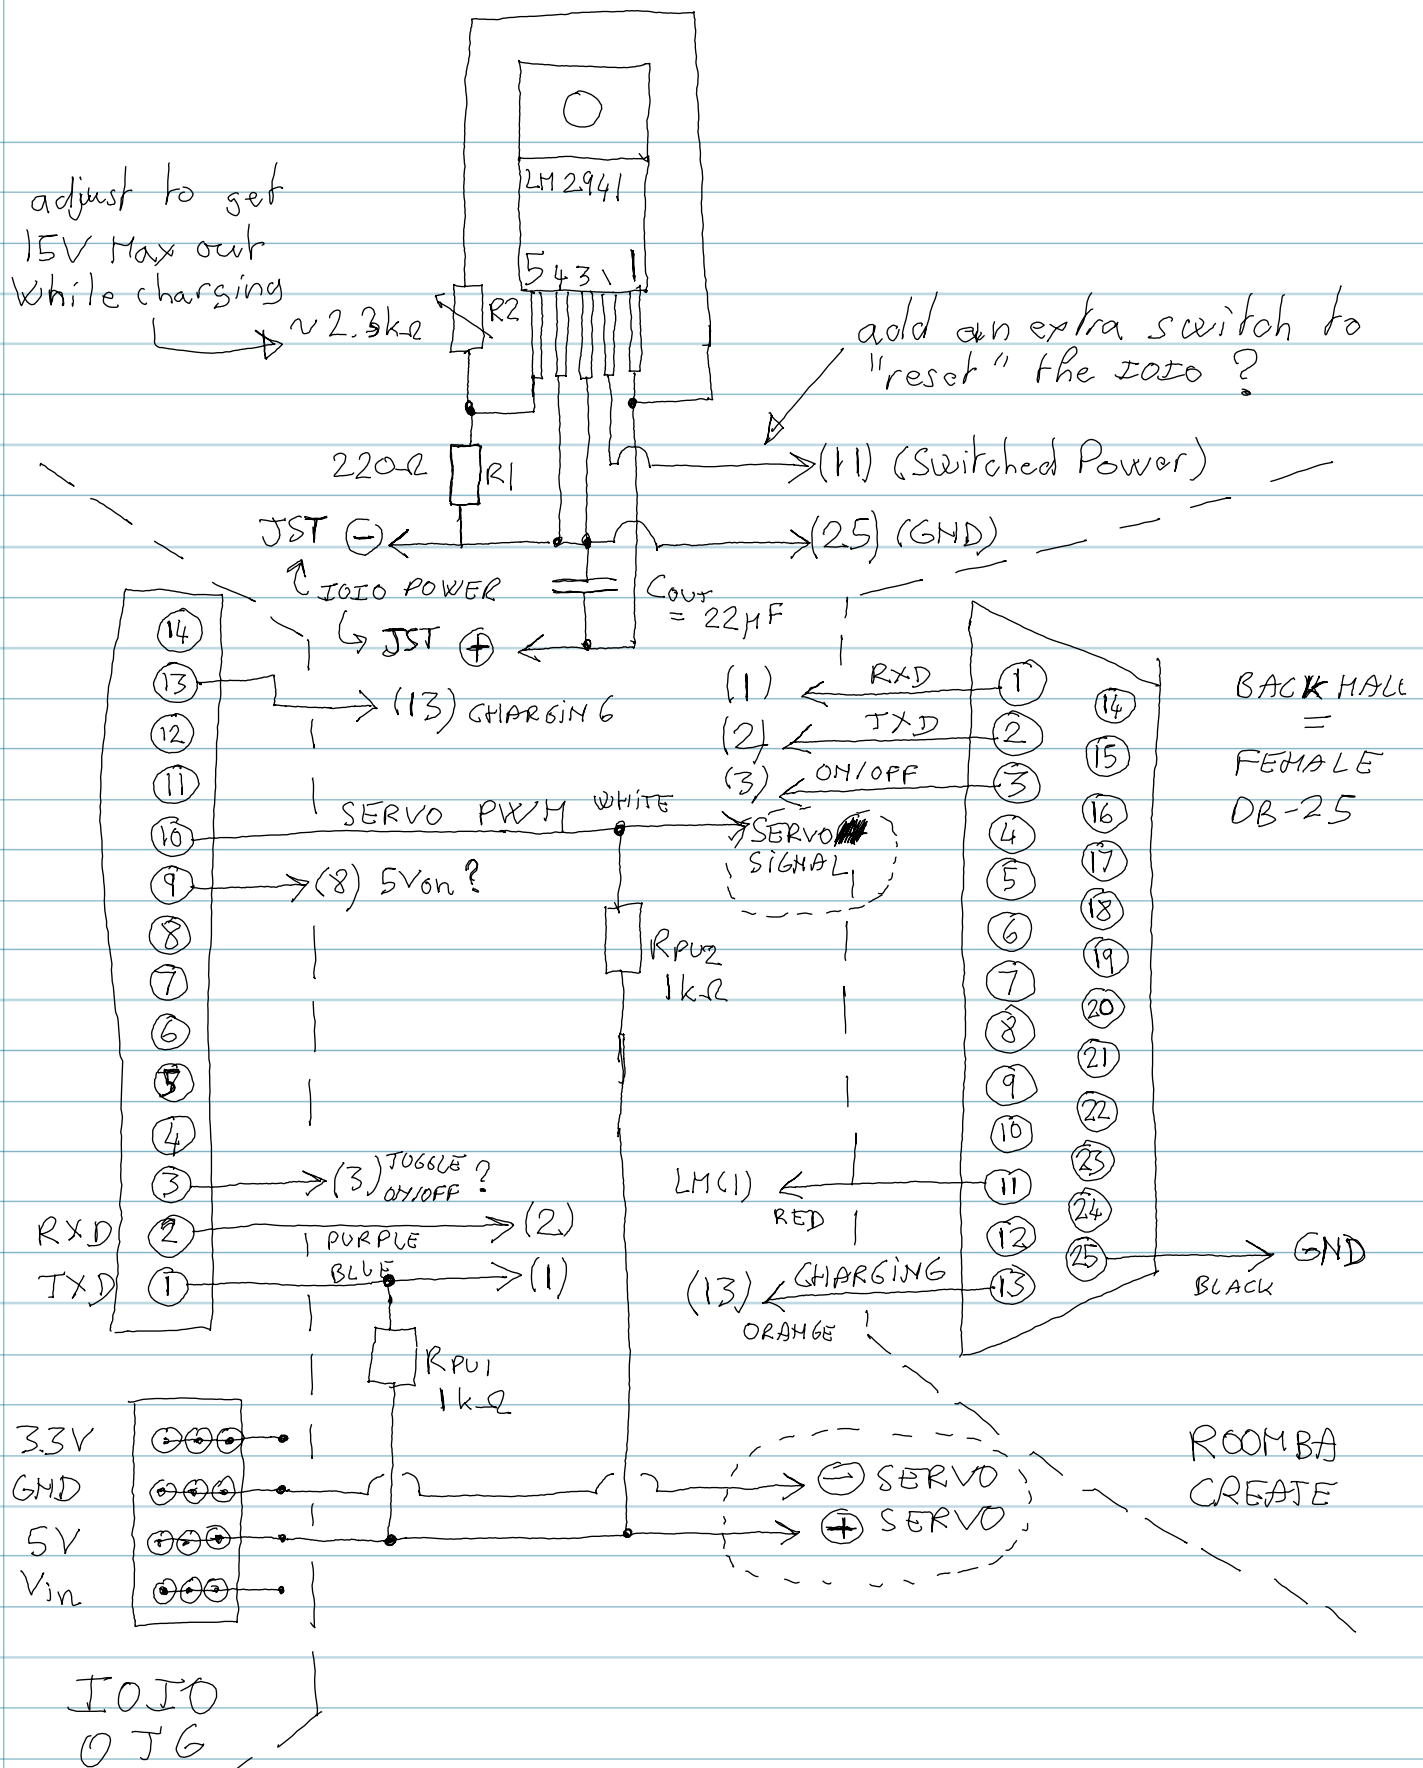 LM2941
5 4 3 \ 1
adjust to get
15V Max out
While charging
~2.3kΩ
R2
add an extra switch to
"reset" the IOIO ?
220Ω
R1
(11) (Switched Power)
JST ⊖
(25) (GND)
IOIO POWER
JST ⊕
Cout
= 22µF
14
13
12
11
10
9
8
7
6
5
4
3
2
1
RXD
TXD
(13) CHARGING
SERVO PWM
WHITE
SERVO
SIGNAL
(8) 5Von ?
RPU2
1kΩ
(3) TOGGLE
ON/OFF ?
PURPLE
(2)
BLUE
(1)
RPU1
1kΩ
(1)
RXD
(2)
TXD
(3)
ON/OFF
LM(1)
RED
(13)
CHARGING
ORANGE
1
2
3
4
5
6
7
8
9
10
11
12
13
14
15
16
17
18
19
20
21
22
23
24
25
GND
BLACK
BACK HALL
=
FEMALE
DB-25
3.3V
GND
5V
Vin
⊖ SERVO
⊕ SERVO
ROOMBA
CREATE
IOIO
OTG